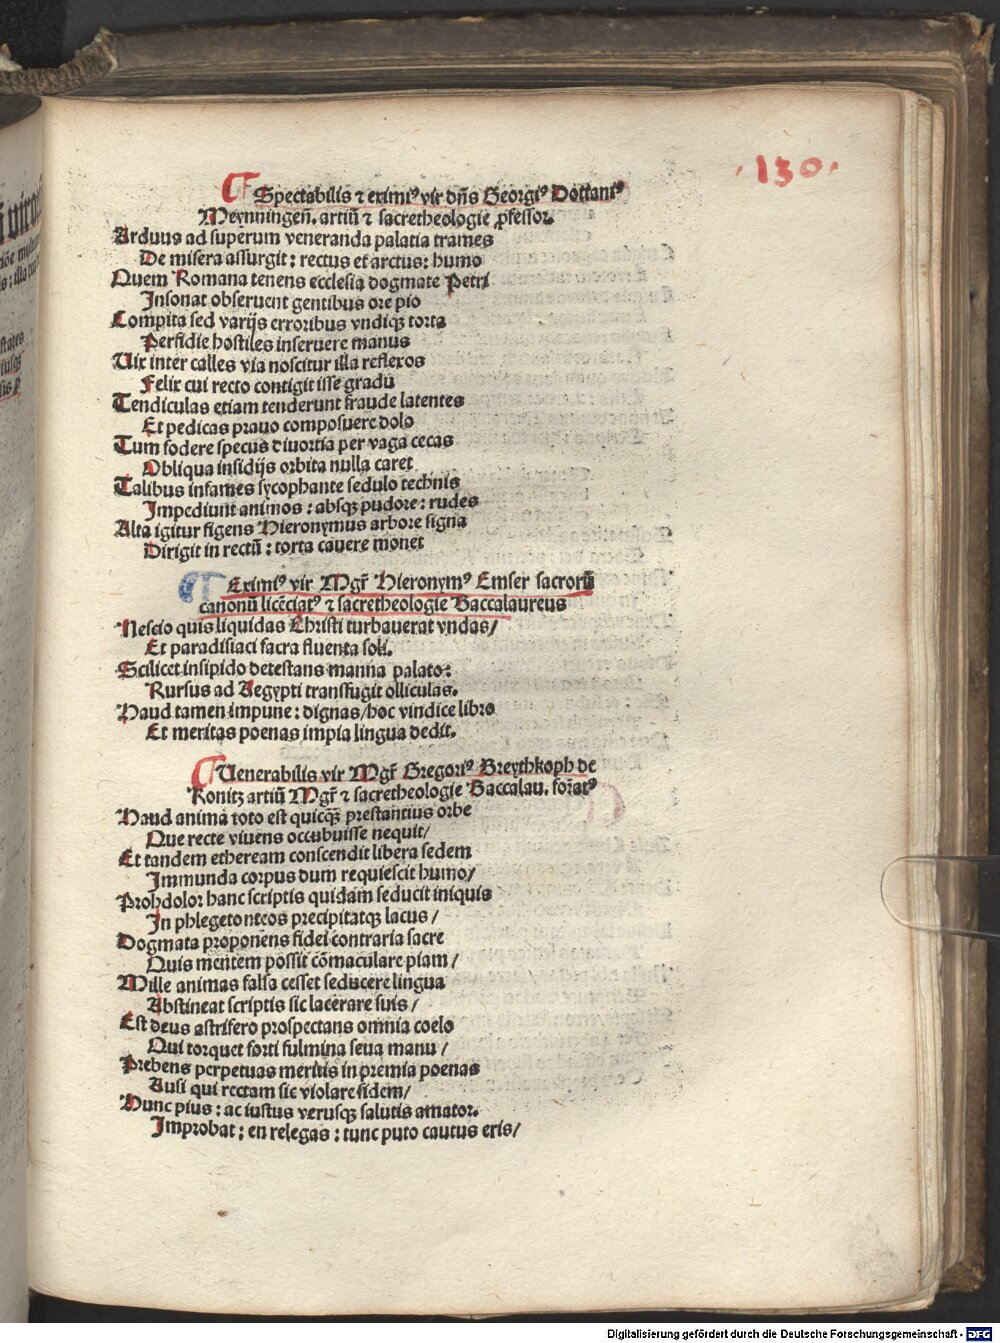 130
Spectabilis ⁊ eximiꝰ vir dn̄s Georgiꝰ Dottaniꝰ
Meynningen̄. artiū ⁊ sacretheologie ꝓfessor.
Arduus ad superum veneranda palatia trames
De misera assurgit: rectus et arctus: humo
Quem Romana tenens ecclesia dogmate Petri
Insonat obseruent gentibus ore pio
Compita sed varijs erroribus vndiqꝫ torta
Perfidie hostiles inseruere manus
Uix inter calles via noscitur illa reflexos
Felix cui recto contigit isse gradu
Tendiculas etiam tenderunt fraude latentes
Et pedicas prauo composuere dolo
Tum fodere specus diuortia per vaga cecas
Obliqua insidijs orbita nulla caret
Talibus infames sycophante sedulo technis
Impediunt animos: absqꝫ pudore: rudes
Alta igitur figens Hieronymus arbore signa
Dirigit in rectū: torta cauere monet
Eximiꝰ vir Mgr̄ Hieronymꝰ Emser sacrorū
canonū licēciatꝰ ⁊ sacretheologie Baccalaureus
Nescio quis liquidas Christi turbauerat vndas/
Et paradisiaci sacra fluenta soli.
Scilicet insipido detestans manna palato:
Rursus ad Aegypti transfugit olliculas.
Haud tamen impune: dignas/hoc vindice libro
Et meritas poenas impia lingua dedit.
Uenerabilis vir Mgr̄ Gregoriꝰ Breythkoph de
Konitz artiū Mgr̄ ⁊ sacretheologie Baccalau. for̄atꝰ
Haud anima toto est quicqꝫ prestantius orbe
Que recte viuens occubuisse nequit/
Et tandem etheream conscendit libera sedem
Immunda corpus dum requiescit humo/
Prohdolor hanc scriptis quidam seducit iniquis
In phlegetonteos precipitatqꝫ lacus/
Dogmata proponens fidei contraria sacre
Quis mentem possit cōmaculare piam/
Mille animas falsa cesset seducere lingua
Abstineat scriptis sic lacerare suis/
Est deus astrifero prospectans omnia coelo
Qui torquet forti fulmina seua manu/
Prebens perpetuas meritis in premia poenas
Ausi qui rectam sic violare fidem/
Hunc pius: ac iustus verusqꝫ salutis amator.
Improbat: en relegas: tunc puto cautus eris/
Digitalisierung gefördert durch die Deutsche Forschungsgemeinschaft - DFG